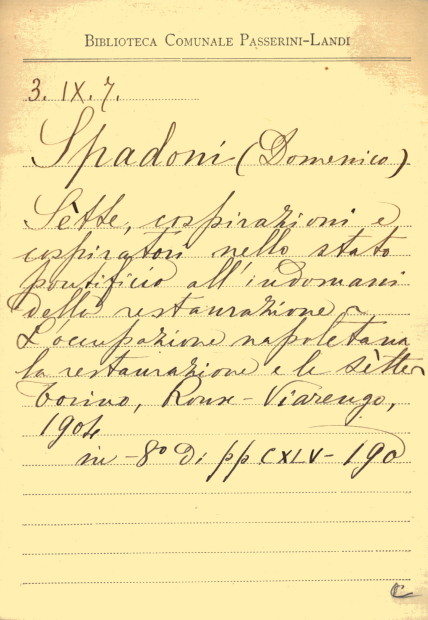 BIBLIOTECA COMUNALE PASSERINI-LANDI
3. IX. 7.
Spadoni (Domenico)
Sètte, cospirazioni e
cospiratori nello stato
pontificio all'indomani
della restaurazione -
L'occupazione napoletana
la restaurazione e le sètte -
Torino, Roux - Viarengo,
1904
in - 8º di pp CXLV - 190